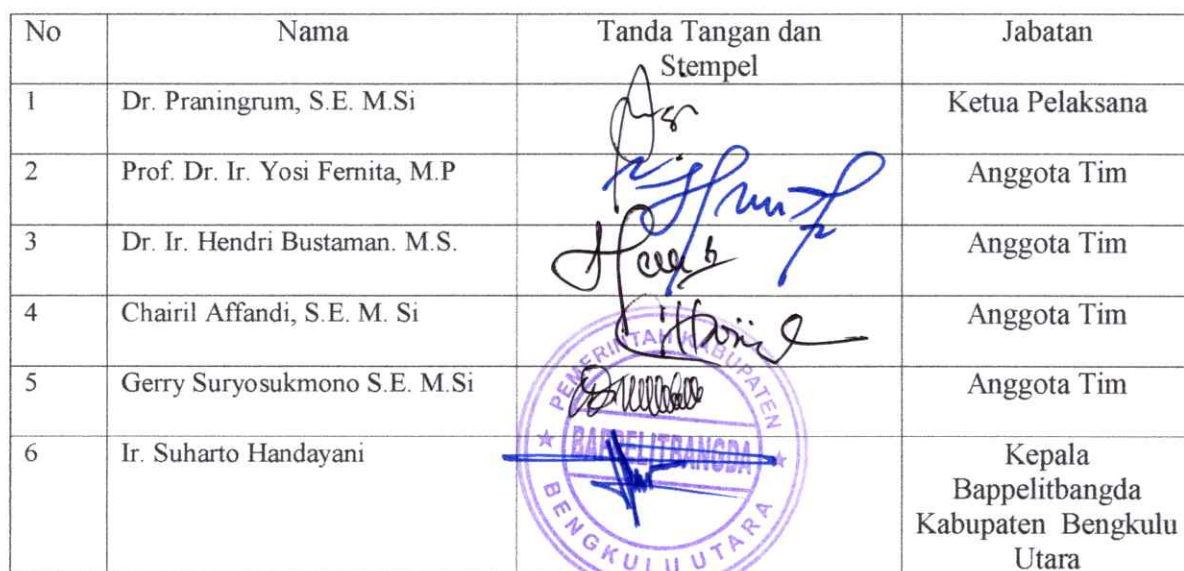 No Nama Tanda Tangan dan Jabatan
Stempel
1 Dr. Praningrum, S.E. M.Si Ketua Pelaksana
2 Prof. Dr. Ir. Yosi Fernita, M.P Anggota Tim
3 Dr. Ir. Hendri Bustaman. M.S. Anggota Tim
4 Chairil Affandi, S.E. M. Si Anggota Tim
5 Gerry Suryosukmono S.E. M.Si Anggota Tim
6 Ir. Suharto Handayani Kepala
Bappelitbangda
Kabupaten Bengkulu
Utara
PEMERINTAH KABUPATEN
BAPPELITBANGDA
BENGKULU UTARA